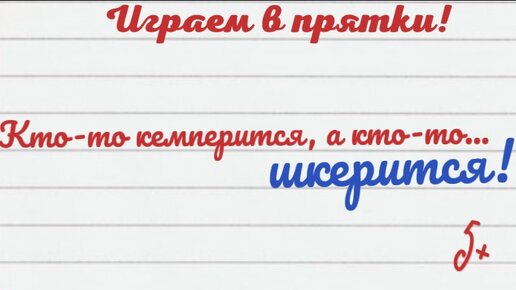 Играем в прятки!
Кто-то кемперится, а кто-то...
шкерится!
5+